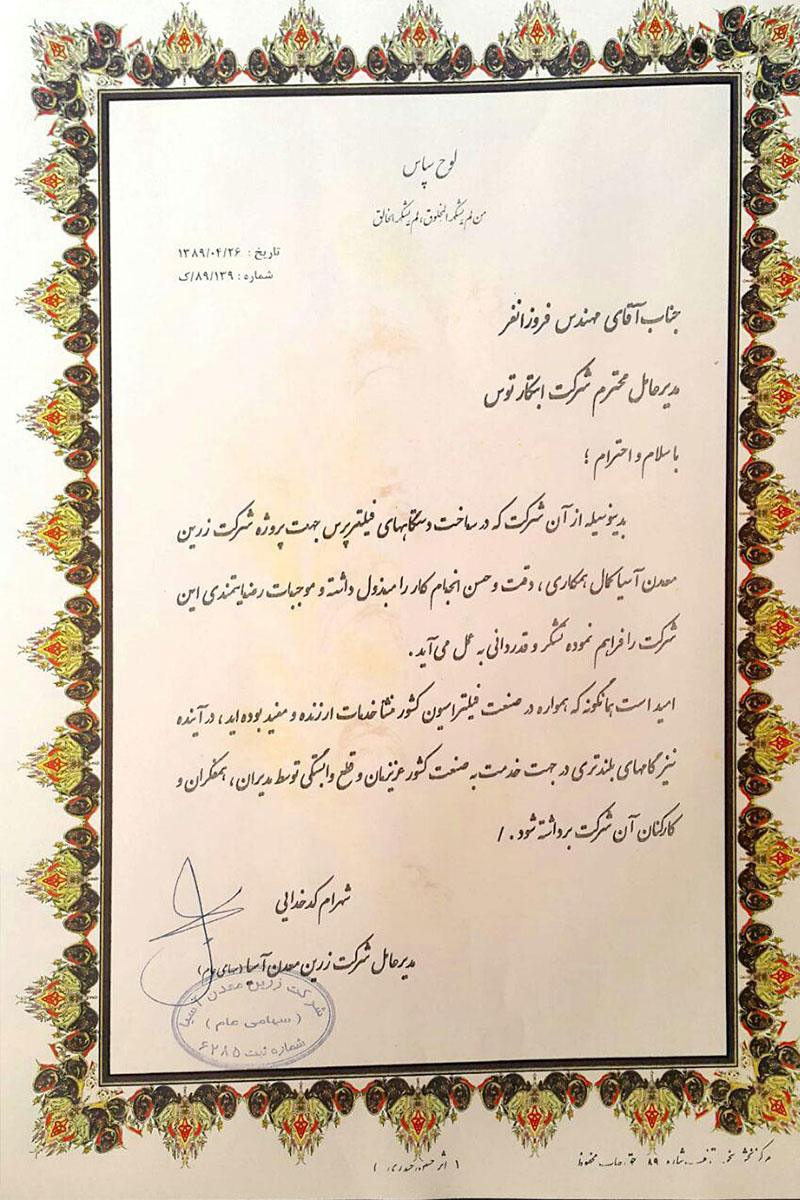 لوح سپاس
من لم یشکر المخلوق، لم یشکر الخالق
تاریخ : ۱۳۸۹/۰۴/۲۶
شماره : ۸۹/۱۳۹/ک
جناب آقای مهندس فروزانفر
مدیرعامل محترم شرکت ابتکار توس
با سلام و احترام ؛
بدینوسیله از آن شرکت که در ساخت دستگاههای فیلترپرس جهت پروژه شرکت زرین
معدن آسیا کمال همکاری ، دقت و حسن انجام کار را مبذول داشته و موجبات رضایتمندی این
شرکت را فراهم نموده تشکر و قدردانی به عمل می‌آید .
امید است همانگونه که همواره در صنعت فیلتراسیون کشور منشا خدمات ارزنده و مفید بوده اید ، در آینده
نیز گامهای بلندتری در جهت خدمت به صنعت کشور عزیزمان و قطع وابستگی توسط مدیران ، همفکران و
کارکنان آن شرکت برداشته شود . /
شهرام کدخدایی
مدیرعامل شرکت زرین معدن آسیا (سهامی عام)
شرکت زرین معدن آسیا
( سهامی عام )
شماره ثبت ۶۲۸۵
شماره ۸۹ محفوظ